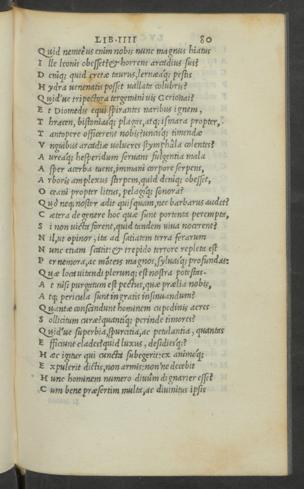 LIB. IIII 80
Quid nemeæus enim nobis nunc magnus hiatus
Ille leonis obesset? & horrens arcadius sus?
Deniq; quid cretæ taurus, lernæaq; pestis
Hydra venenatis posset uallata colubris?
Quid'ue tripectora tergemini uis Gerionai?
Et Diomedis equi spirantes naribus ignem,
Thracen, bistoniasq; plagas, atq; ismara propter,
Tantopere officerent nobis? uncisq; timendæ
Vnguibus arcadiæ uolucres stymphala colentes?
Aureaq; hesperidum seruans fulgentia mala
Asper acerba tuens, immani corpore serpens,
Arboris amplexus stirpem, quid deniq; obesset,
Oceani propter litus, pelagiq; sonora?
Quo neq; noster adit quisquam, nec barbarus audet?
Cætera de genere hoc quæ sunt portenta perempta,
Si non uicta forent, quid tandem uiua nocerent?
Nil, ut opinor, ita ad satiatem terra ferarum
Nunc etiam scatit: & trepido terrore repleta est
Per nemora, ac montes magnos, syluasq; profundas:
Quæ loca uitandi plerunq; est nostra potestas.
At nisi purgatum est pectus, quæ prælia nobis,
Atq; pericula sunt ingratis insinuandum?
Quantæ conscindunt hominem cupedinis acres
Sollicitum curæ? quantiq; perinde timores?
Quid'ue superbia, spurcitia, ac petulantia, quantas
Efficiunt clades? quid luxus, desidiesq;?
Hæc igitur qui cuncta subegerit: ex animoq;
Expulerit dictis, non armis: nonne decebit
Hunc hominem numero diuûm dignarier esse?
Cum bene præsertim multa, ac diuinitus ipsis